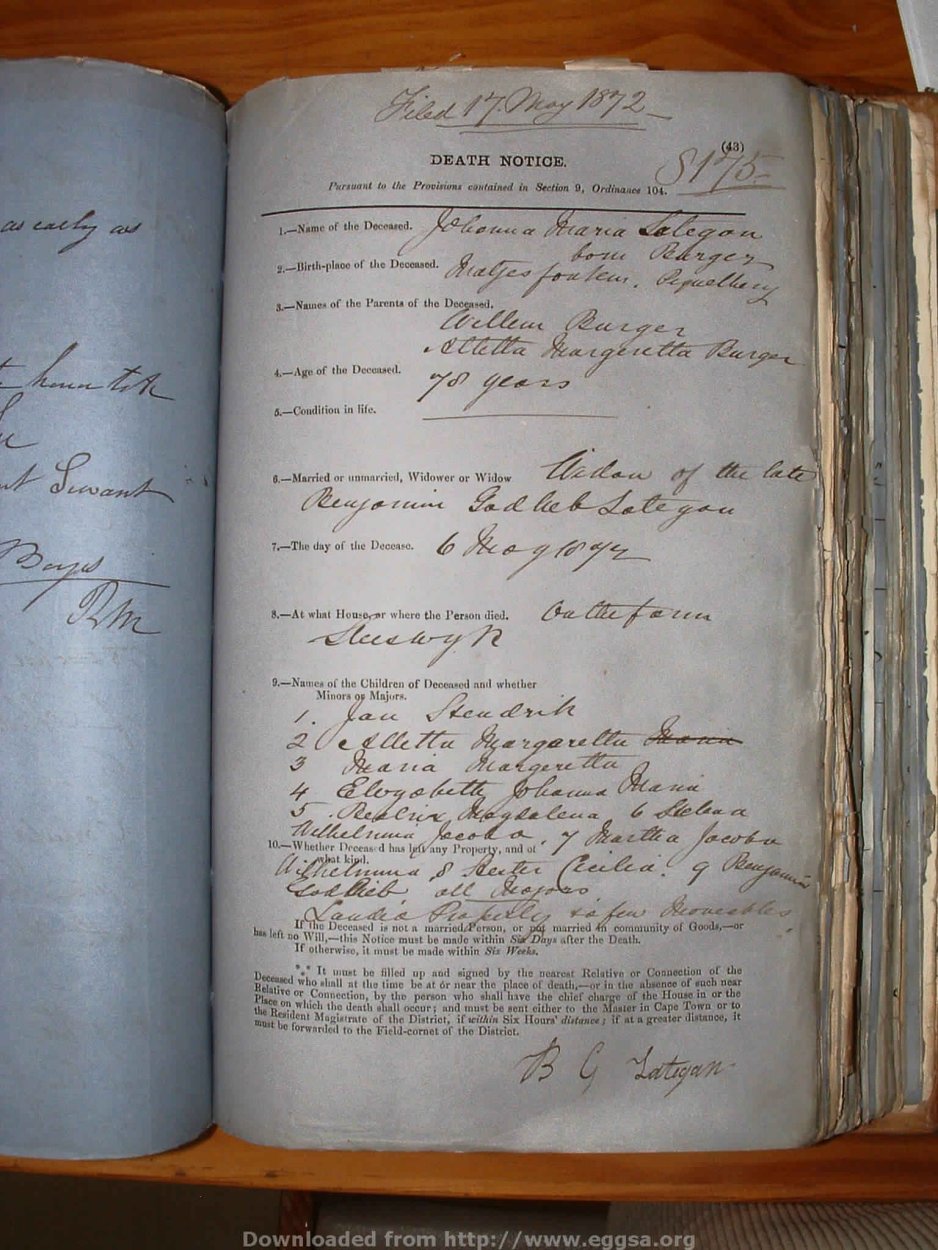 as early as
Servant
Boyes
RM
Filed 17. May 1872
(43)
DEATH NOTICE.
8175
Pursuant to the Provisions contained in Section 9, Ordinance 104.
1.—Name of the Deceased. Johanna Maria Lategan
born Burger
2.—Birth-place of the Deceased. Matjesfontein, Piquetberg
3.—Names of the Parents of the Deceased.
Willem Burger
Alletta Margeretta Burger
4.—Age of the Deceased. 78 years
5.—Condition in life.
6.—Married or unmarried, Widower or Widow Widow of the late
Benjamin Godlieb Lategan
7.—The day of the Decease. 6 May 1872
8.—At what House, or where the Person died. On the farm
9.—Names of the Children of Deceased and whether
Minors or Majors.
1. Jan Hendrik
2 Alletta Margaretta Maria
3 Maria Margeretta
4 Elizabeth Johanna Maria
5. Beatrix Magdalena 6 Helena
Wilhelmina Jacoba, 7 Martha Jacoba
10.—Whether Deceased has left any Property, and of
what kind.
Wilhelmina 8 Hester Cecilia. 9 Benjamin
Godlieb all Majors
Landed Property & a few Moveables
If the Deceased is not a married Person, or not married in community of Goods,—or
has left no Will,—this Notice must be made within Six Days after the Death.
If otherwise, it must be made within Six Weeks.
*⁎* It must be filled up and signed by the nearest Relative or Connection of the
Deceased who shall at the time be at or near the place of death,—or in the absence of such near
Relative or Connection, by the person who shall have the chief charge of the House in or the
Place on which the death shall occur; and must be sent either to the Master in Cape Town or to
the Resident Magistrate of the District, if within Six Hours' distance; if at a greater distance, it
must be forwarded to the Field-cornet of the District.
B G Lategan
Downloaded from http://www.eggsa.org